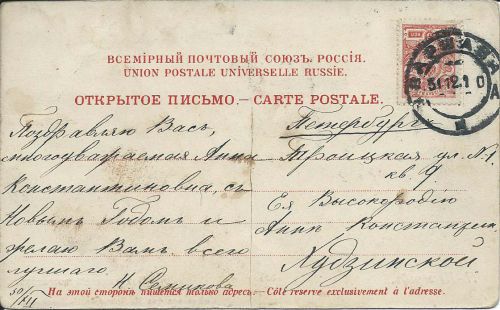 ВСЕМІРНЫЙ ПОЧТОВЫЙ СОЮЗЪ. РОССІЯ.
UNION POSTALE UNIVERSELLE RUSSIE.
ОТКРЫТОЕ ПИСЬМО. — CARTE POSTALE.
ВАРШАВА
31.12.10
Поздравляю Васъ,
многоуважаемая Анна
Константиновна, съ
Новымъ Годомъ и
желаю Вамъ всего
лучшаго
Н.
30/XII
Петербургъ
Троицкая ул. №1
кв. 9
Ея Высокородію
Аннѣ Константин.
Худзинской
На этой сторонѣ пишется только адресъ. — Côté réservé exclusivement à l'adresse.